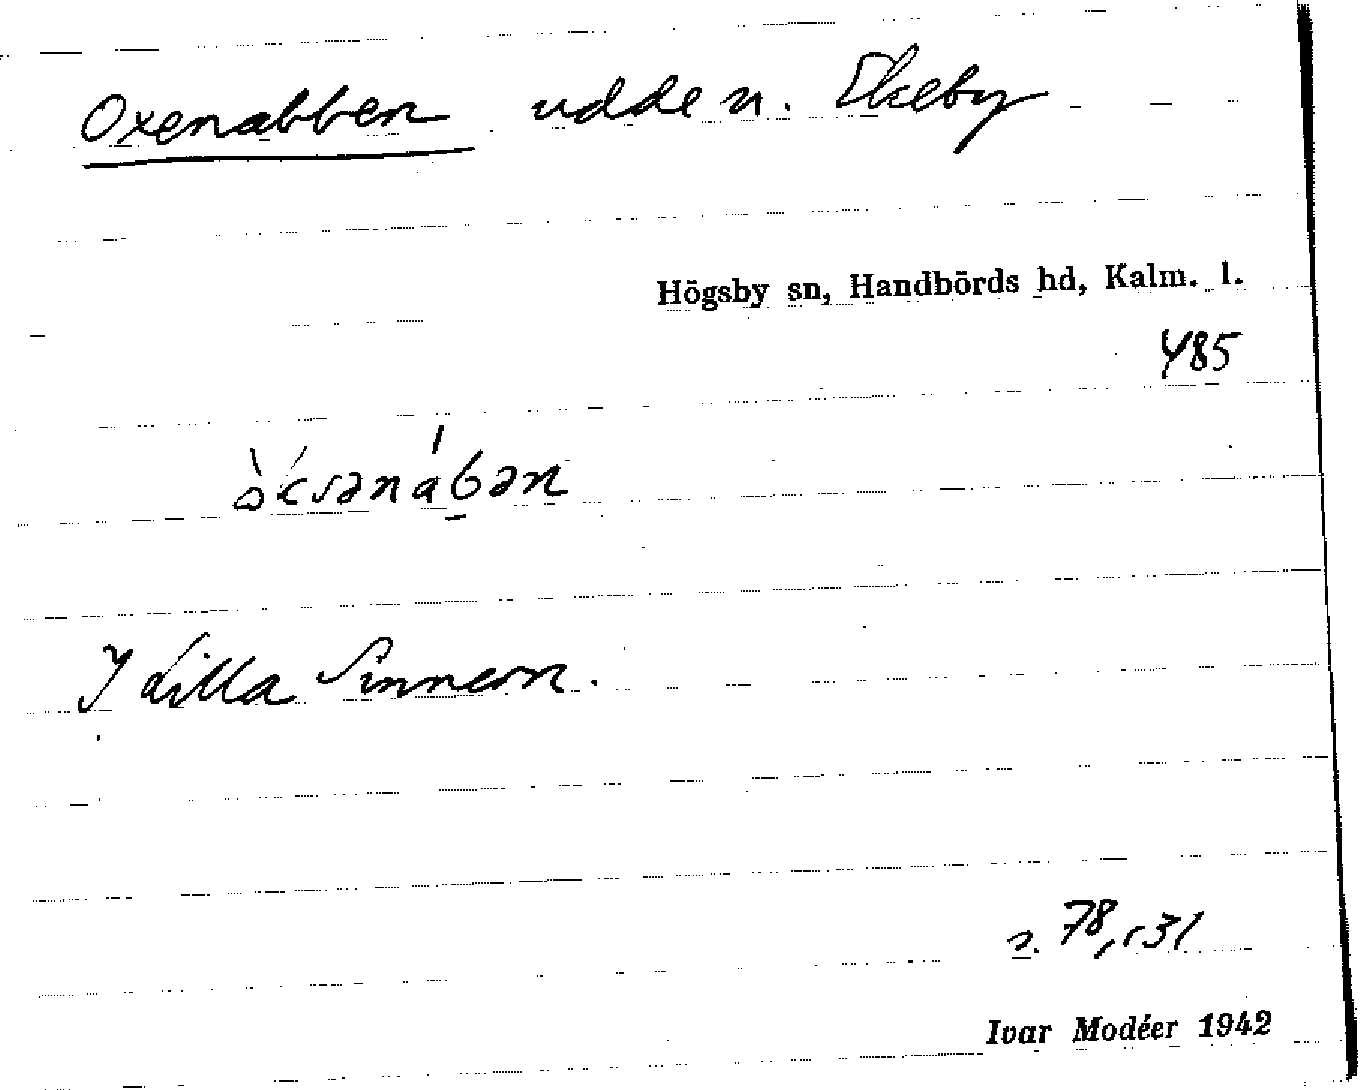 Oxenabben udde n. Ekeby
Högsby sn, Handbörds hd, Kalm. l.
485
I Lilla Sinnern.
s. 78, r 31
Ivar Modéer 1942